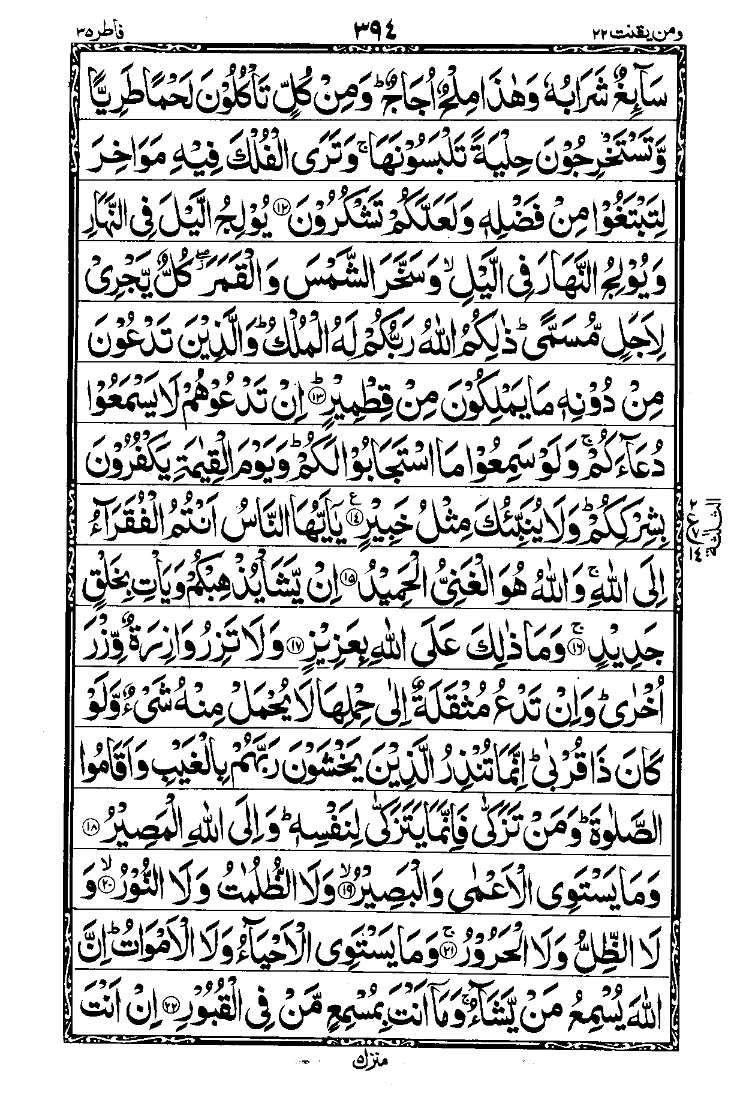 ومن یقنت ۲۲
۳۹٤
فاطر ۳۵
سَآئِغٌ شَرَابُهٗ وَهٰذَا مِلْحٌ اُجَاجٌ ؕ وَمِنْ كُلٍّ تَاْكُلُوْنَ لَحْمًا طَرِيًّا
وَّتَسْتَخْرِجُوْنَ حِلْيَةً تَلْبَسُوْنَهَا ۚ وَتَرَى الْفُلْكَ فِيْهِ مَوَاخِرَ
لِتَبْتَغُوْا مِنْ فَضْلِهٖ وَلَعَلَّكُمْ تَشْكُرُوْنَ ۱۲ يُوْلِجُ الَّيْلَ فِى النَّهَارِ
وَيُوْلِجُ النَّهَارَ فِى الَّيْلِ ۙ وَسَخَّرَ الشَّمْسَ وَالْقَمَرَ ۖ ز كُلٌّ يَّجْرِىْ
لِاَجَلٍ مُّسَمًّى ؕ ذٰلِكُمُ اللّٰهُ رَبُّكُمْ لَهُ الْمُلْكُ ؕ وَالَّذِيْنَ تَدْعُوْنَ
مِنْ دُوْنِهٖ مَا يَمْلِكُوْنَ مِنْ قِطْمِيْرٍ ؕ ۱۳ اِنْ تَدْعُوْهُمْ لَا يَسْمَعُوْا
دُعَآءَكُمْ ۚ وَلَوْ سَمِعُوْا مَا اسْتَجَابُوْا لَكُمْ ؕ وَيَوْمَ الْقِيٰمَةِ يَكْفُرُوْنَ
بِشِرْكِكُمْ ؕ وَلَا يُنَبِّئُكَ مِثْلُ خَبِيْرٍ ۱٤ ع يٰۤاَيُّهَا النَّاسُ اَنْتُمُ الْفُقَرَآءُ
اِلَى اللّٰهِ ۚ وَاللّٰهُ هُوَ الْغَنِىُّ الْحَمِيْدُ ۱۵ اِنْ يَّشَاْ يُذْهِبْكُمْ وَيَاْتِ بِخَلْقٍ
جَدِيْدٍ ۚ ۱٦ وَمَا ذٰلِكَ عَلَى اللّٰهِ بِعَزِيْزٍ ۱۷ وَلَا تَزِرُ وَازِرَةٌ وِّزْرَ
اُخْرٰى ؕ وَاِنْ تَدْعُ مُثْقَلَةٌ اِلٰى حِمْلِهَا لَا يُحْمَلْ مِنْهُ شَىْءٌ وَّلَوْ
كَانَ ذَا قُرْبٰى ؕ اِنَّمَا تُنْذِرُ الَّذِيْنَ يَخْشَوْنَ رَبَّهُمْ بِالْغَيْبِ وَاَقَامُوا
الصَّلٰوةَ ؕ وَمَنْ تَزَكّٰى فَاِنَّمَا يَتَزَكّٰى لِنَفْسِهٖ ؕ وَاِلَى اللّٰهِ الْمَصِيْرُ ۱۸
وَمَا يَسْتَوِى الْاَعْمٰى وَالْبَصِيْرُ ۙ ۱۹ وَلَا الظُّلُمٰتُ وَلَا النُّوْرُ ۙ ۲۰ وَ
لَا الظِّلُّ وَلَا الْحَرُوْرُ ۚ ۲۱ وَمَا يَسْتَوِى الْاَحْيَآءُ وَلَا الْاَمْوَاتُ ؕ اِنَّ
اللّٰهَ يُسْمِعُ مَنْ يَّشَآءُ ۚ وَمَاۤ اَنْتَ بِمُسْمِعٍ مَّنْ فِى الْقُبُوْرِ ۲۲ اِنْ اَنْتَ
۲
ع
۷
۱٤
الثلثة
منزل ۵